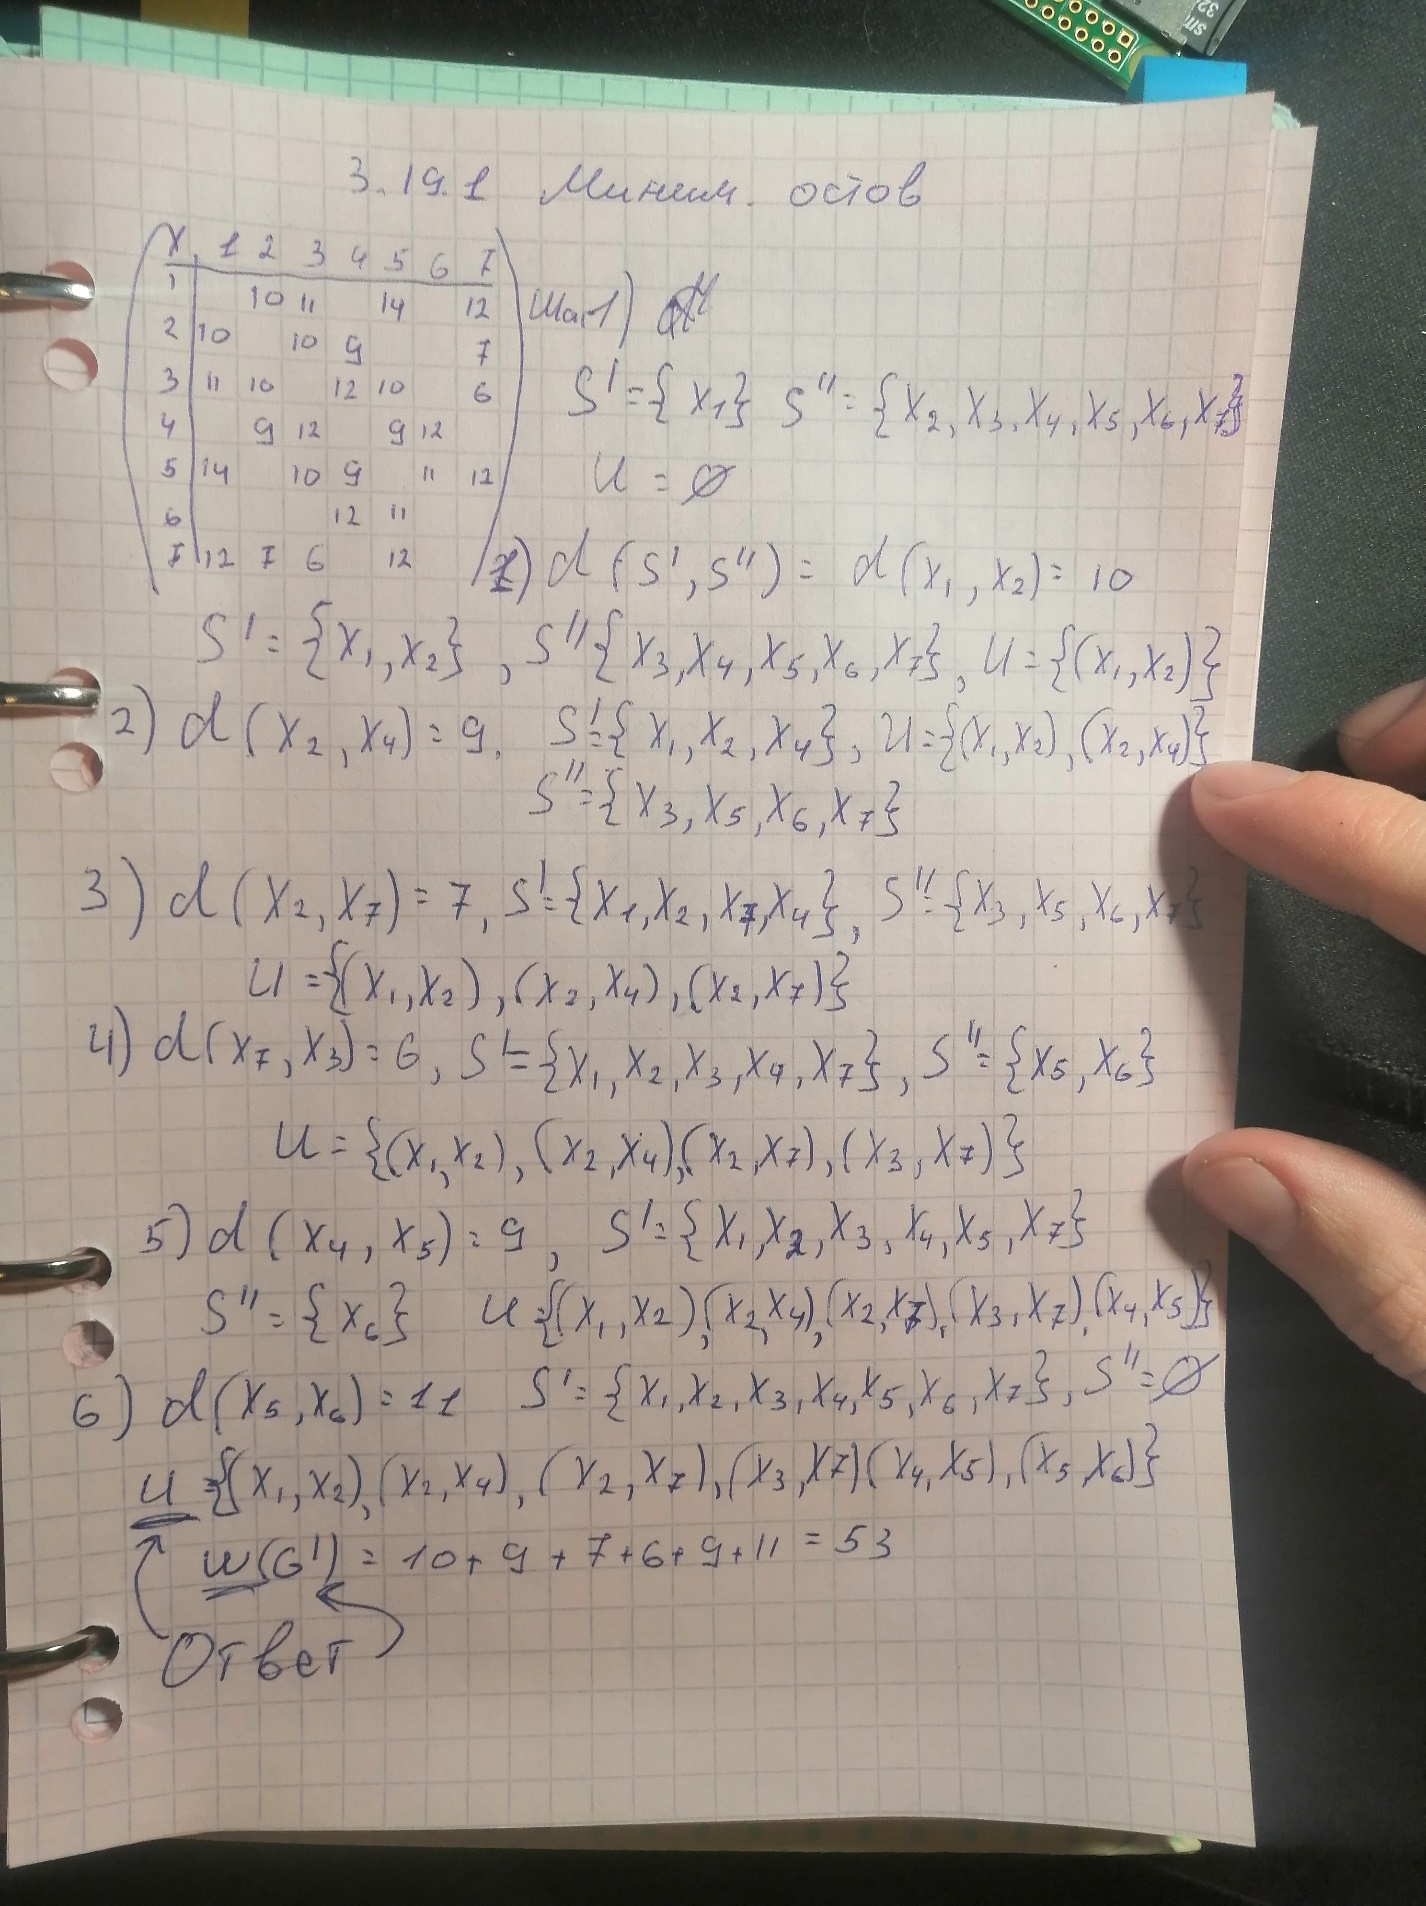 3.19.1 Миним. остов
X 1 2 3 4 5 6 7
1 10 11 14 12
2 10 10 9 7
3 11 10 12 10 6
4 9 12 9 12
5 14 10 9 11 12
6 12 11
7 12 7 6 12
Шаг1)
S' = {X1} S'' = {X2, X3, X4, X5, X6, X7}
U = ∅
1) d (S', S'') = d (X1, X2) = 10
S' = {X1, X2}, S'' {X3, X4, X5, X6, X7}, U = {(X1, X2)}
2) d (X2, X4) = 9. S' = {X1, X2, X4}, U = {(X1, X2), (X2, X4)}
S'' = {X3, X5, X6, X7}
3) d (X2, X7) = 7, S' = {X1, X2, X7, X4}, S'' = {X3, X5, X6, X7}
U = {(X1, X2), (X2, X4), (X2, X7)}
4) d(X7, X3) = 6, S' = {X1, X2, X3, X4, X7}, S'' = {X5, X6}
U = {(X1, X2), (X2, X4), (X2, X7), (X3, X7)}
5) d (X4, X5) = 9, S' = {X1, X2, X3, X4, X5, X7}
S'' = {X6} U = {(X1, X2), (X2, X4), (X2, X7), (X3, X7), (X4, X5)}
6) d(X5, X6) = 11 S' = {X1, X2, X3, X4, X5, X6, X7}, S'' = ∅
U = {(X1, X2), (X2, X4), (X2, X7), (X3, X7) (X4, X5), (X5, X6)}
W(G') = 10 + 9 + 7 + 6 + 9 + 11 = 53
Ответ